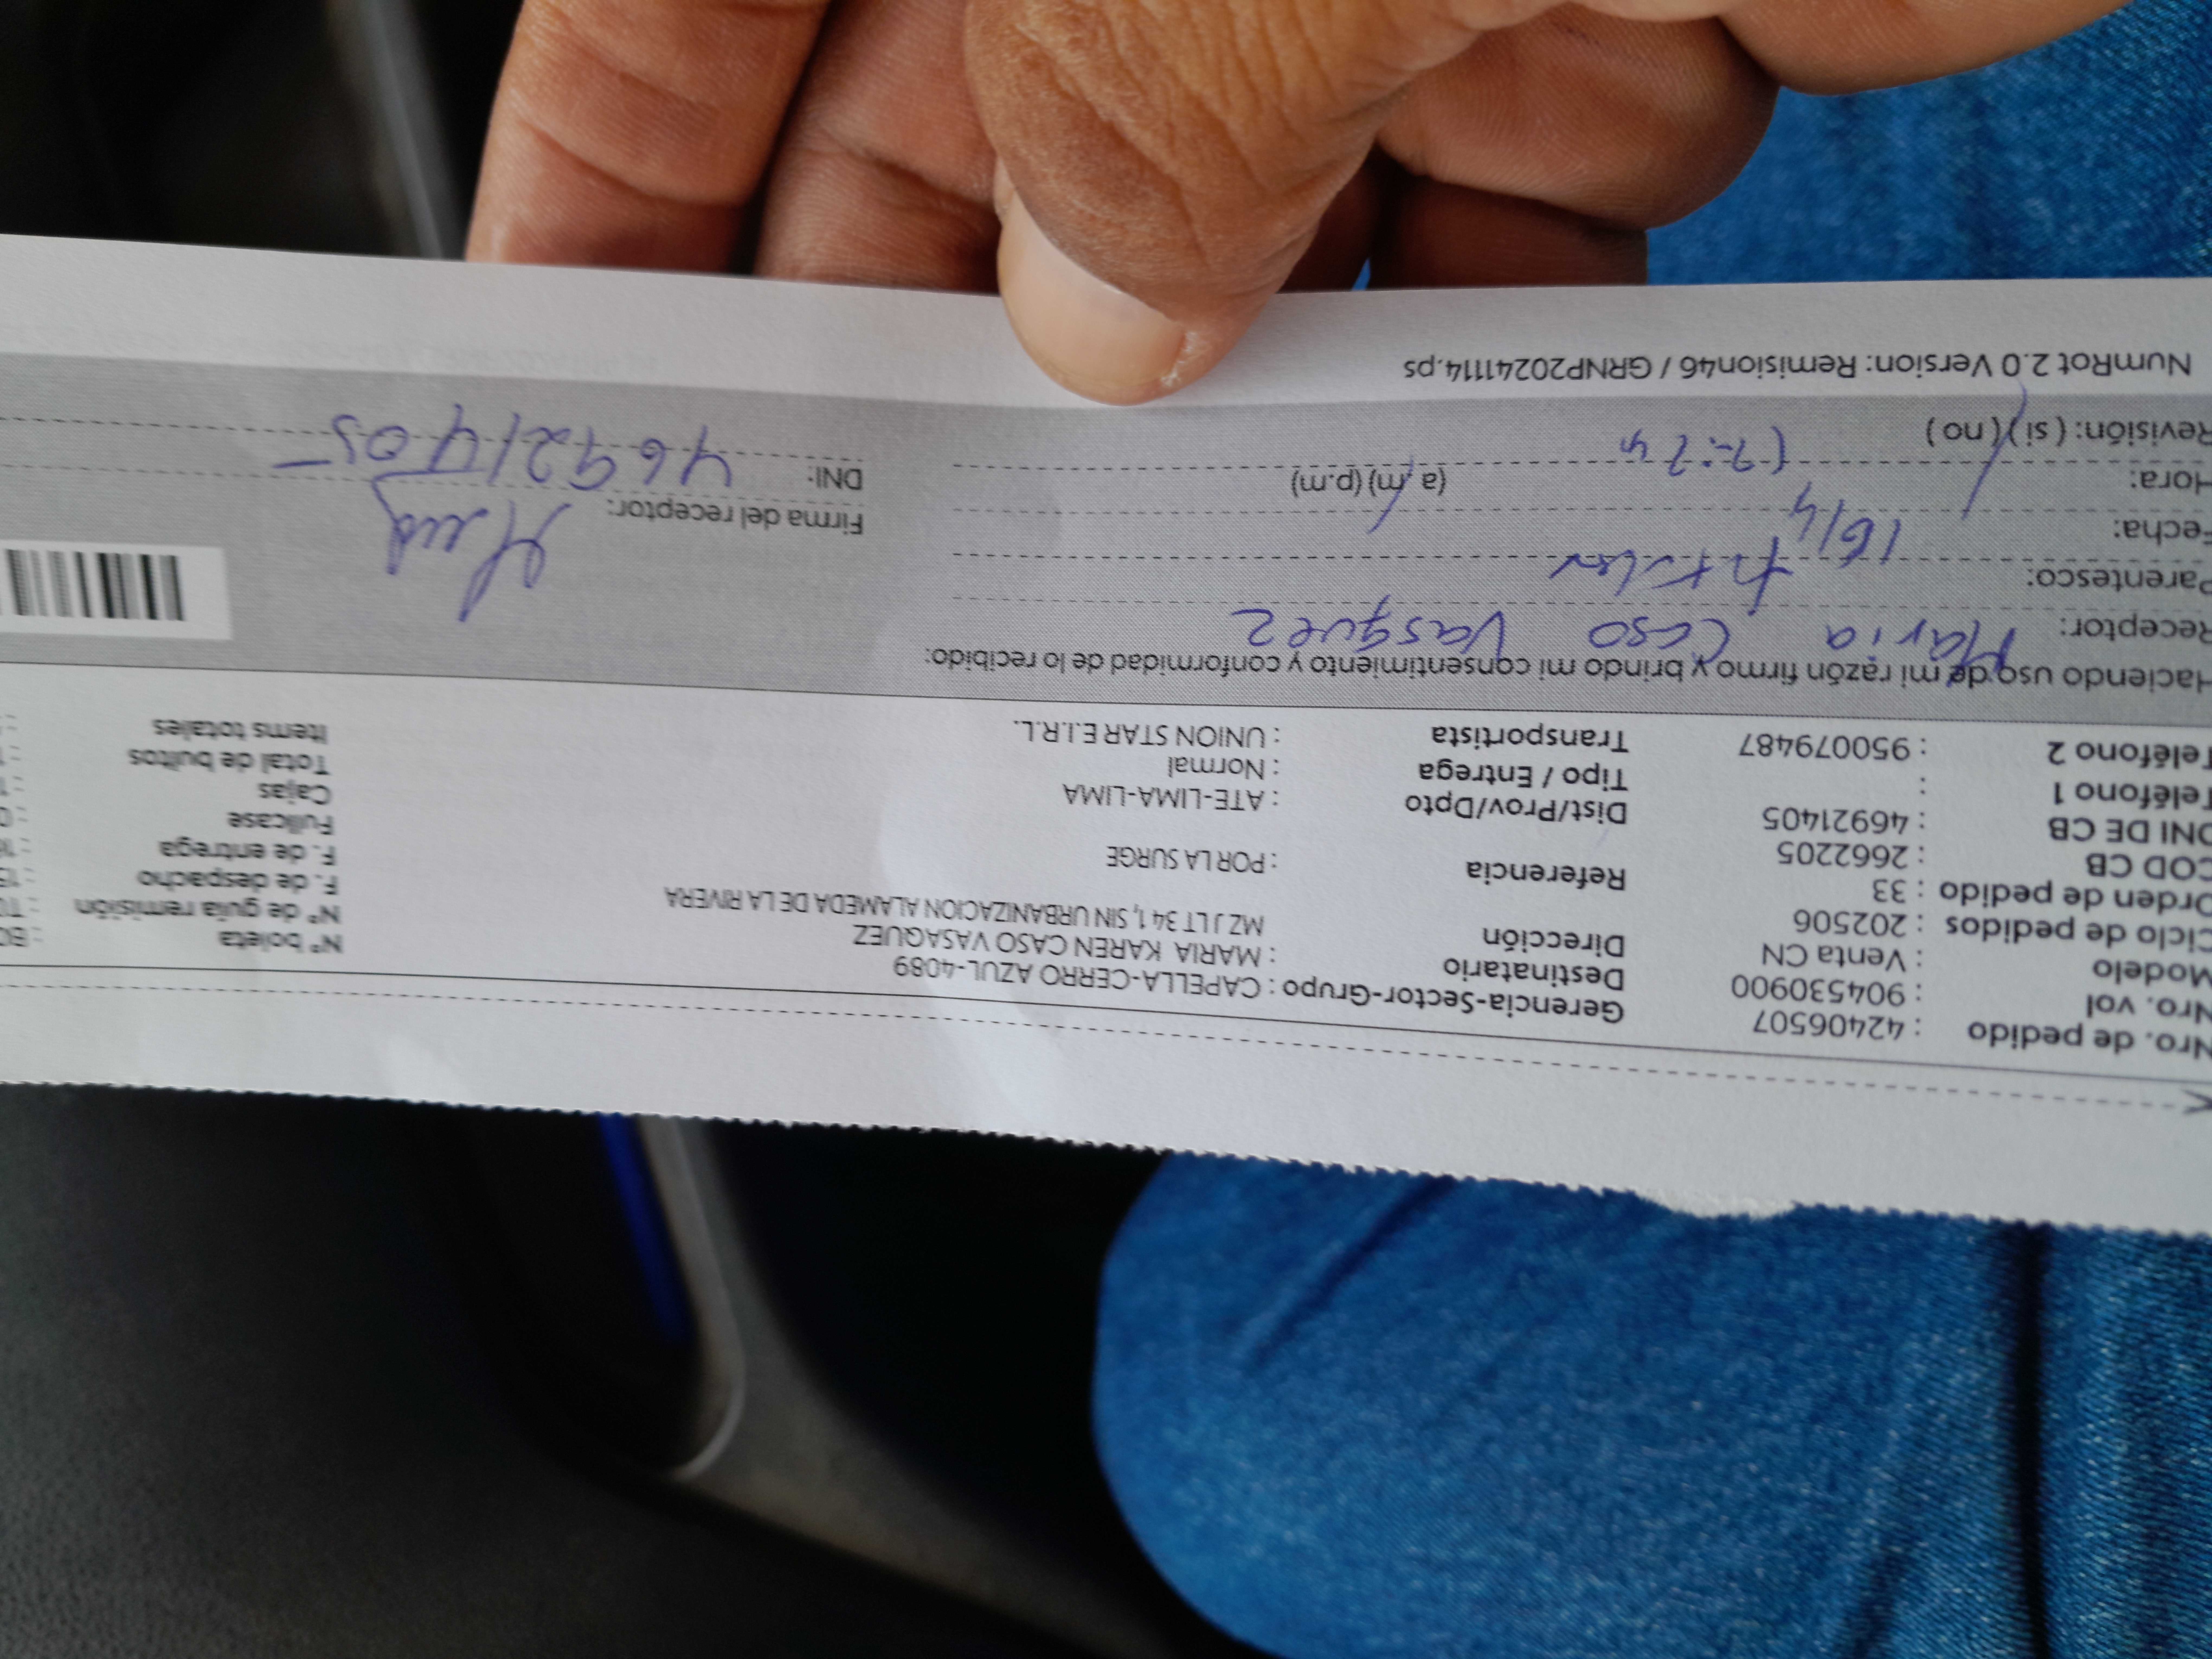 Nro. de pedido : 42406507 Gerencia-Sector-Grupo : CAPELLA-CERRO AZUL-4089 N° boleta
Nro. vol : 904530900 Destinatario : MARIA KAREN CASO VASAQUEZ N° de guía remisión
Modelo : Venta CN Dirección MZ J LT 34 1, SIN URBANIZACION ALAMEDA DE LA RIVERA F. de despacho
Ciclo de pedidos : 202506 Referencia : POR LA SURGE F. de entrega
Orden de pedido : 33 Dist/Prov/Dpto : ATE-LIMA-LIMA Fullcase
COD CB : 2662205 Tipo / Entrega : Normal Cajas
DNI DE CB : 46921405 Transportista : UNION STAR E.I.R.L. Total de bultos
Teléfono 1 : Items totales
Teléfono 2 : 950079487
Haciendo uso de mi razón firmo y brindo mi consentimiento y conformidad de lo recibido:
Receptor: Maria Caso Vasquez
Parentesco:
Fecha: 16/4 Firma del receptor:
Hora: (a.m) (p.m) DNI: 46921405
Revisión: (si) (no)
NumRot 2.0 Version: Remision46 / GRNP20241114.ps